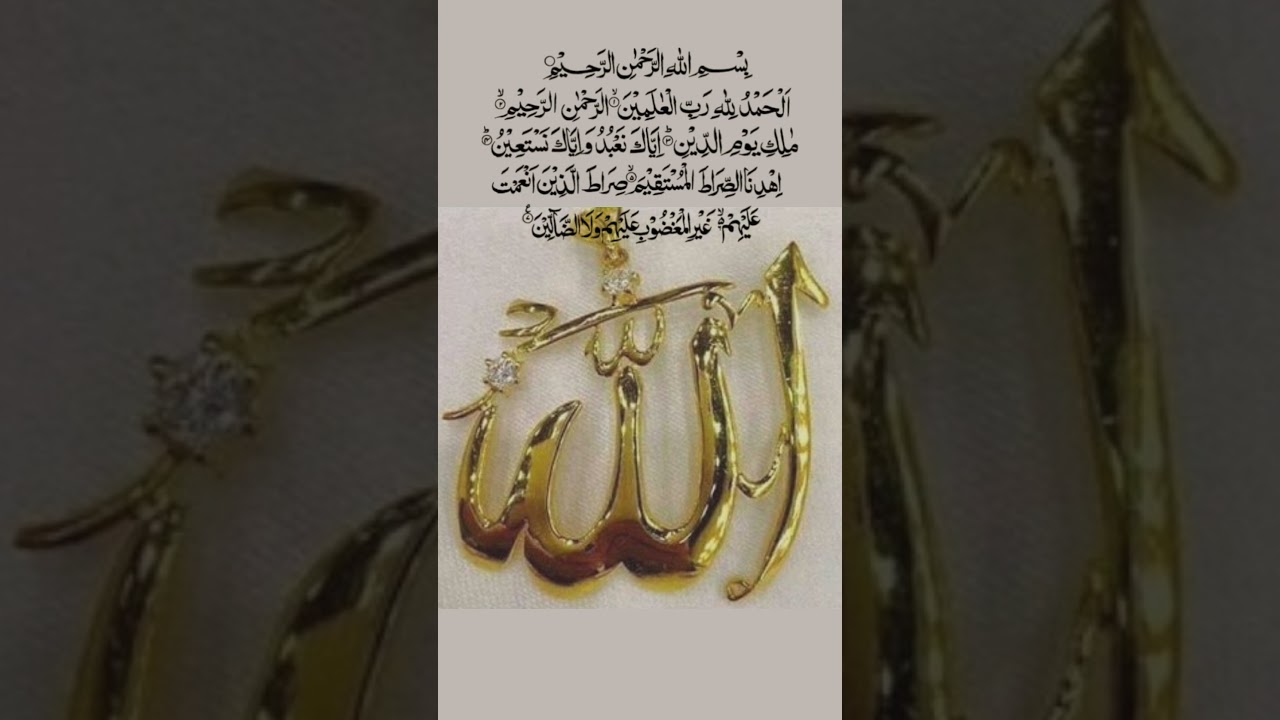 بِسْمِ اللهِ الرَّحْمٰنِ الرَّحِيْمِ
اَلْحَمْدُ لِلّٰهِ رَبِّ الْعٰلَمِيْنَ ۙ﴿۱﴾ الرَّحْمٰنِ الرَّحِيْمِ ۙ﴿۲﴾
مٰلِكِ يَوْمِ الدِّيْنِ ؕ﴿۳﴾ اِيَّاكَ نَعْبُدُ وَاِيَّاكَ نَسْتَعِيْنُ ؕ﴿۴﴾
اِهْدِنَا الصِّرَاطَ الْمُسْتَقِيْمَ ۙ﴿۵﴾ صِرَاطَ الَّذِيْنَ اَنْعَمْتَ
عَلَيْهِمْ ۙ﴿۶﴾ غَيْرِ الْمَغْضُوْبِ عَلَيْهِمْ وَلَا الضَّآلِّيْنَ ﴿۷﴾
الله